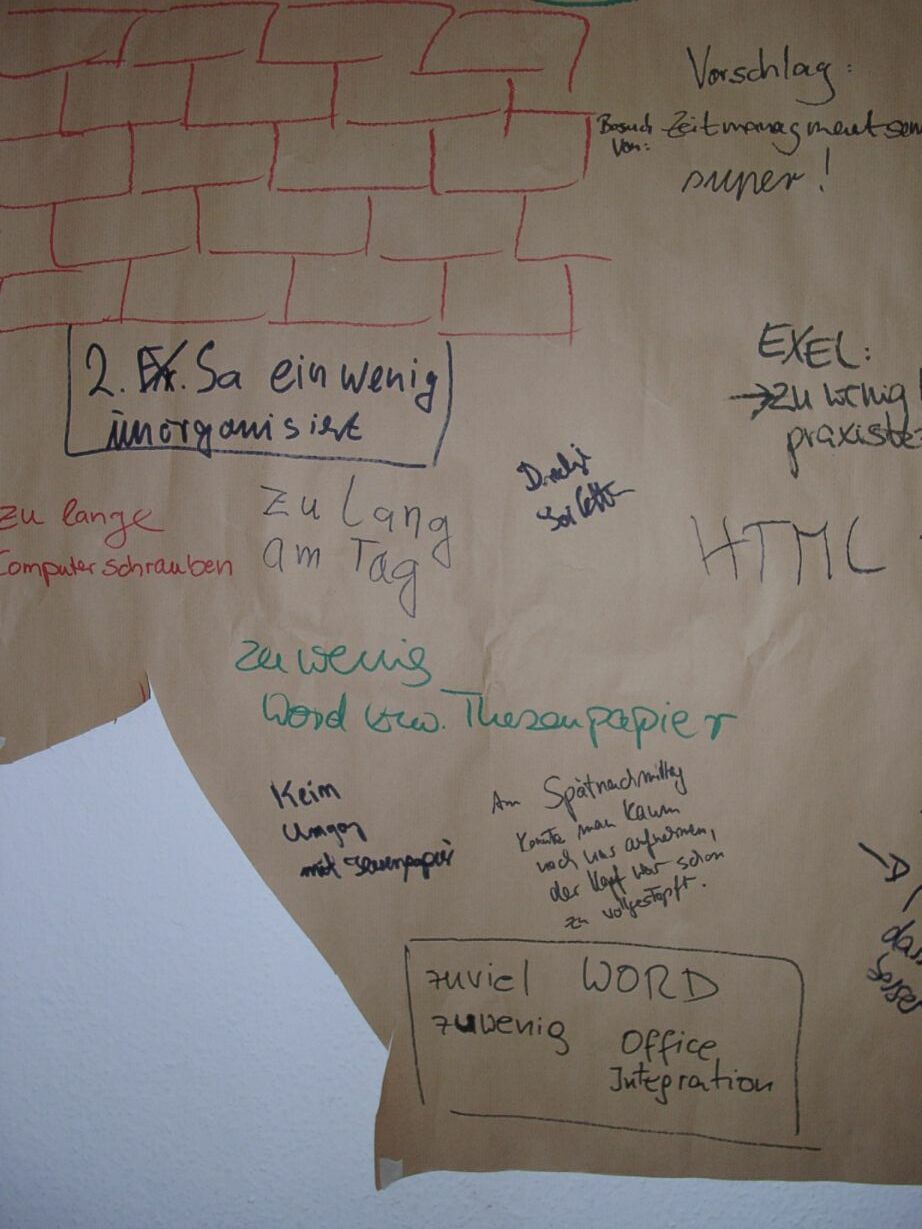 Vorschlag:
Besuch
von: Zeitmanagmentsem
super!
2. Sa ein wenig
unorganisiert
EXEL:
→ zu wenig
praxiste
zu lange
Computer schrauben
zu lang
am Tag
HTML
zu wenig
Word bzw. Thesenpapier
Keim
Umgang
mit
Am Spätnachmittag
konnte man kaum
noch was aufnehmen,
der Kopf war schon
zu vollgestopft.
das
zuviel WORD
zuwenig Office
Integration